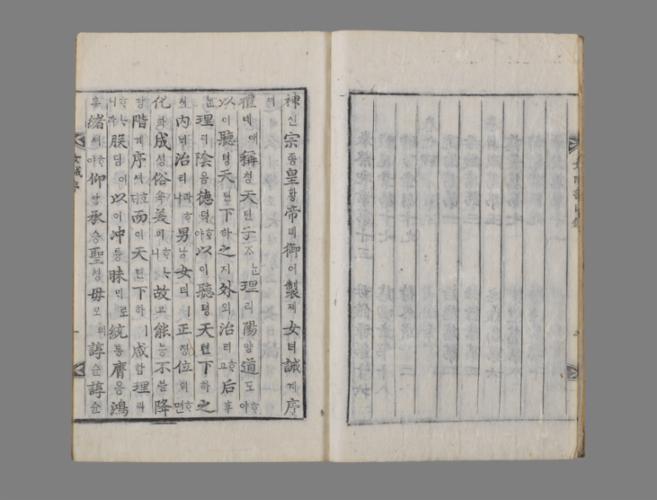 神신宗종皇황帝뎨御어製졔女녀誡계序
셔
禮녜예稱칭天텬子ᄌᆞᄂᆞᆫ理리陽양道도ᄒᆞ야
以이聽텽天텬下하之지外외治티ᄒᆞ고后후
ᄂᆞᆫ理리陰음德덕ᄒᆞ야以이聽텽天텬下하之
지內ᄂᆡ治티라ᄒᆞ니男남女녀ㅣ正졍位위ᄒᆞ면
化화成셩俗쇽美미ᄒᆞᄂᆞ니故고能능不블降
강階계序셔ᄒᆞ야而이天텬下하ㅣ咸함理리라
ᄒᆞ니朕딤이以이冲튱昧ᄆᆡ로統통膺응鴻
홍緖셔ᄒᆞ야仰앙承승聖셩母모의諄슌諄슌
女誡序